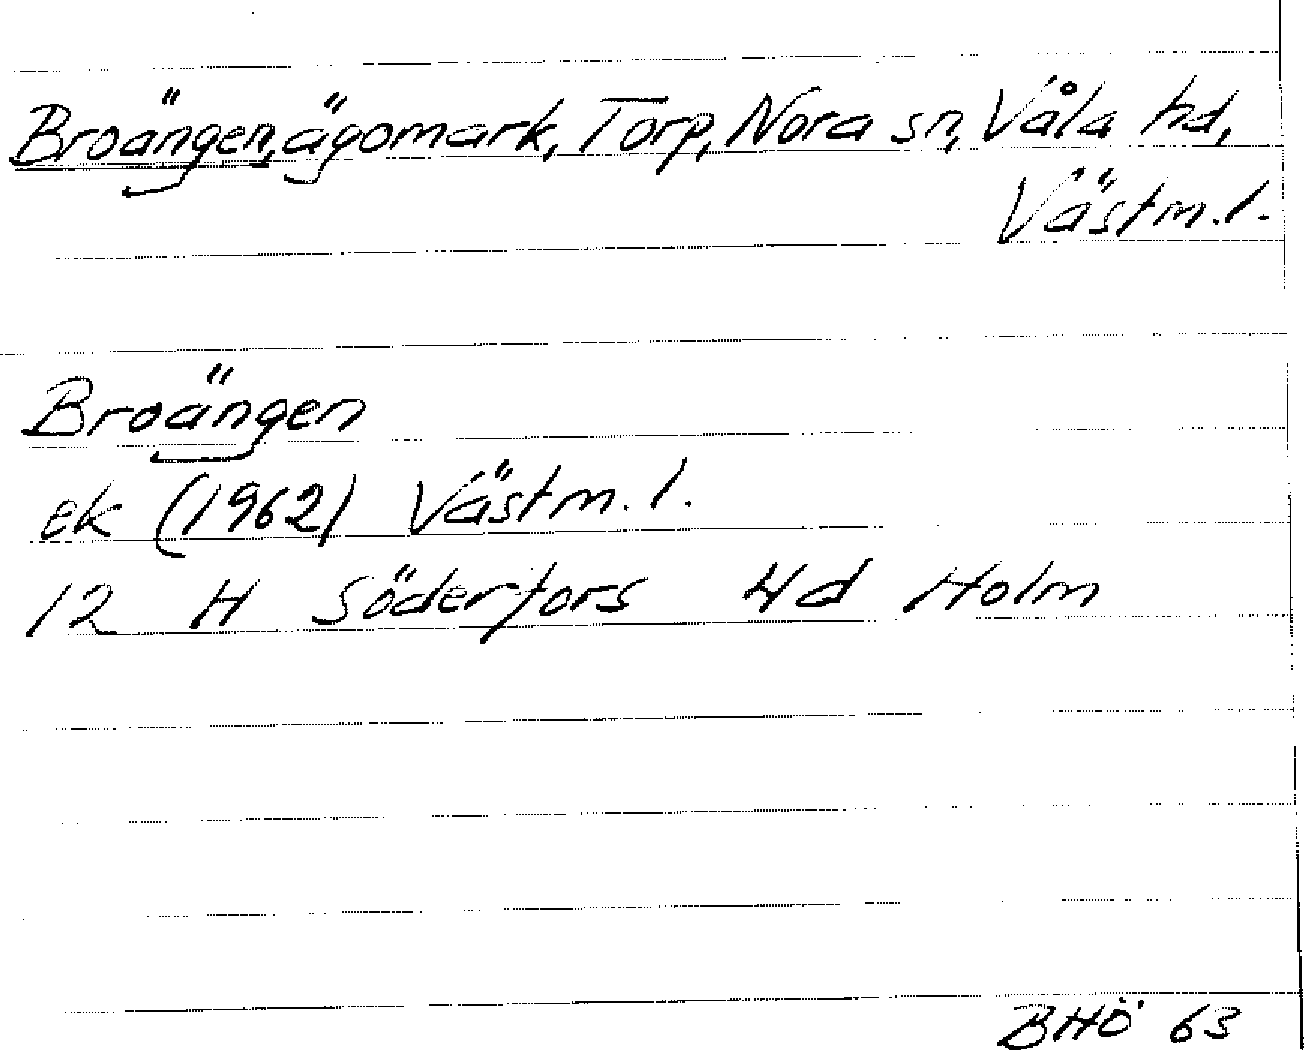 Broängen, ägomark, Torp, Nora sn, Våla hd,
Västm. l.
Broängen
ek (1962) Västm. l.
12 H Söderfors 4d Holm
BHÖ 63